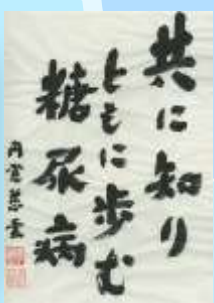 共に知り
ともに歩む
糖尿病